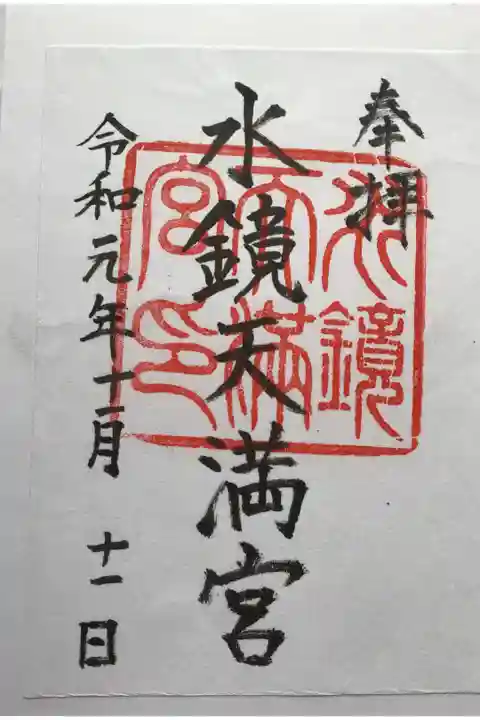 奉拝
水鏡天満宮
水鏡
天満
宮印
令和元年十一月 十一日